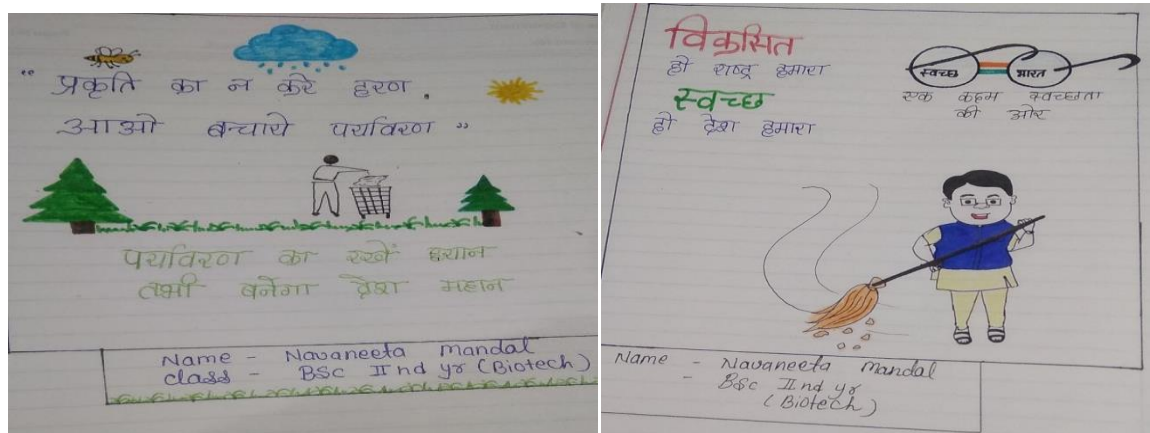 “ प्रकृति का न करे हरण ,
आओ बचाये पर्यावरण ”
पर्यावरण का रखें ध्यान
तभी बनेगा देश महान
Name - Navaneeta Mandal
class - BSc IInd yr (Biotech)
विकसित
हो राष्ट्र हमारा
स्वच्छ
हो देश हमारा
स्वच्छ भारत
एक कदम स्वच्छता
की ओर
Name - Navaneeta Mandal
- BSc IInd yr
(Biotech)